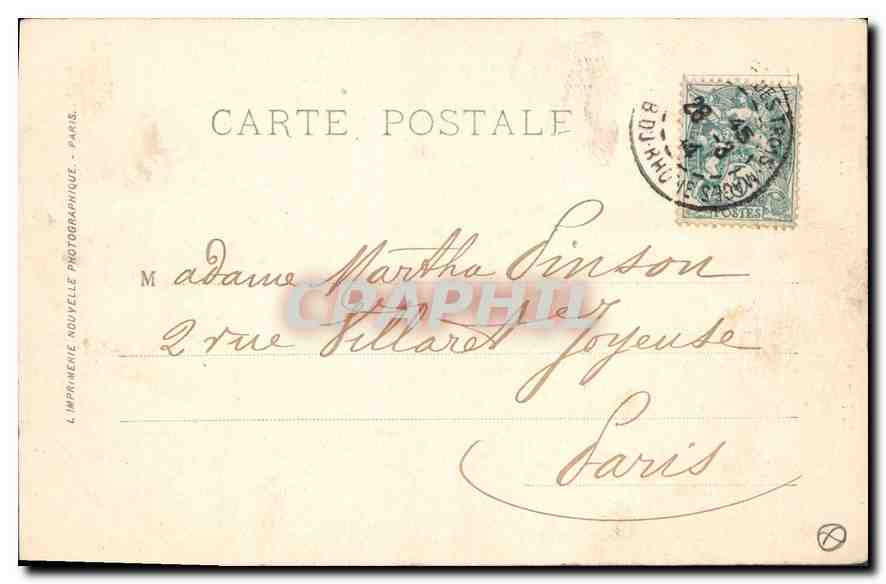 CARTE POSTALE
L'IMPRIMERIE NOUVELLE PHOTOGRAPHIQUE. - PARIS.
POSTES
TROIS-MAGES
B. DU-RHONE
28
Madame Martha Pinson
2 rue Villaret Joyeuse
Paris
CPAPHIL